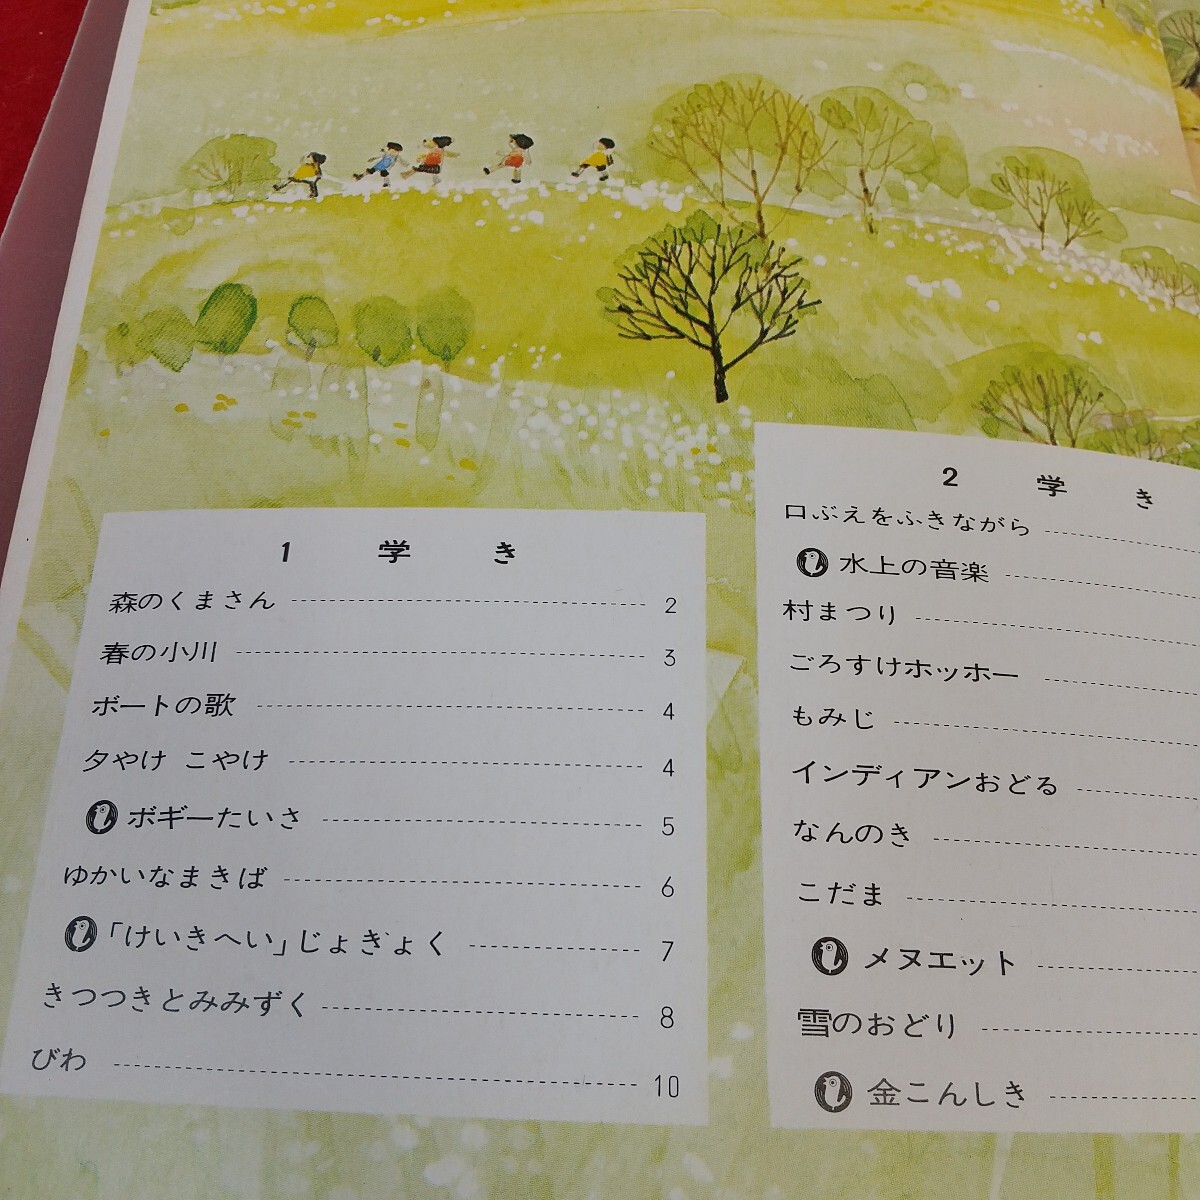 1 学 き
森のくまさん 2
春の小川 3
ボートの歌 4
夕やけ こやけ 4
ボギーたいさ 5
ゆかいなまきば 6
「けいきへい」じょきょく 7
きつつきとみみずく 8
びわ 10
2 学 き
口ぶえをふきながら
水上の音楽
村まつり
ごろすけホッホー
もみじ
インディアンおどる
なんのき
こだま
メヌエット
雪のおどり
金こんしき